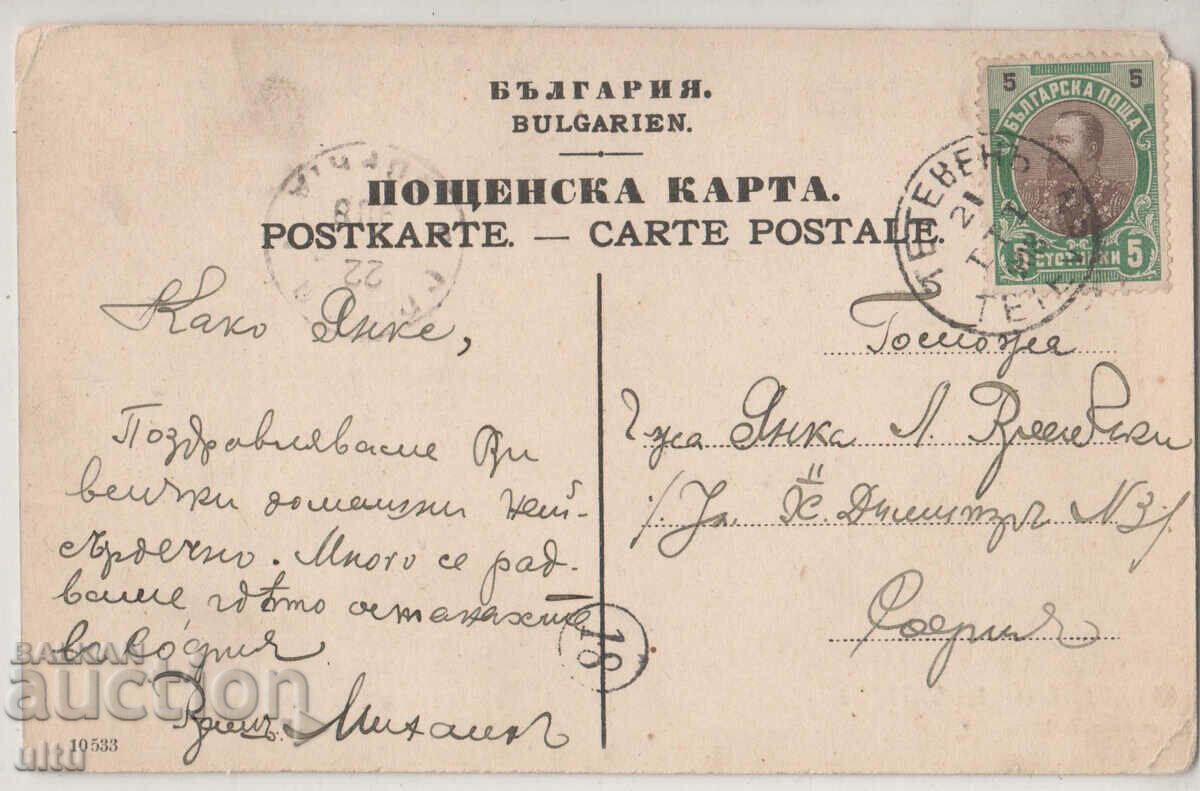 БЪЛГАРИЯ.
BULGARIEN.
ПОЩЕНСКА КАРТА.
POSTKARTE. — CARTE POSTALE.
5 5
БЪЛГАРСКА ПОЩА
5 СТОТИНКИ 5
ТЕТЕВЕНЪ
21
22
Како Янке,
Поздравляваме Ви
всички домашни най-
сърдечно. Много се рад-
ваме гдѣто останахте
въ София
Михаилъ
18
Госпожа
Г-жа Янка Л.
/. Ул. Х. Димитъръ N3/.
София
10533
BALKAN
auction
ultu